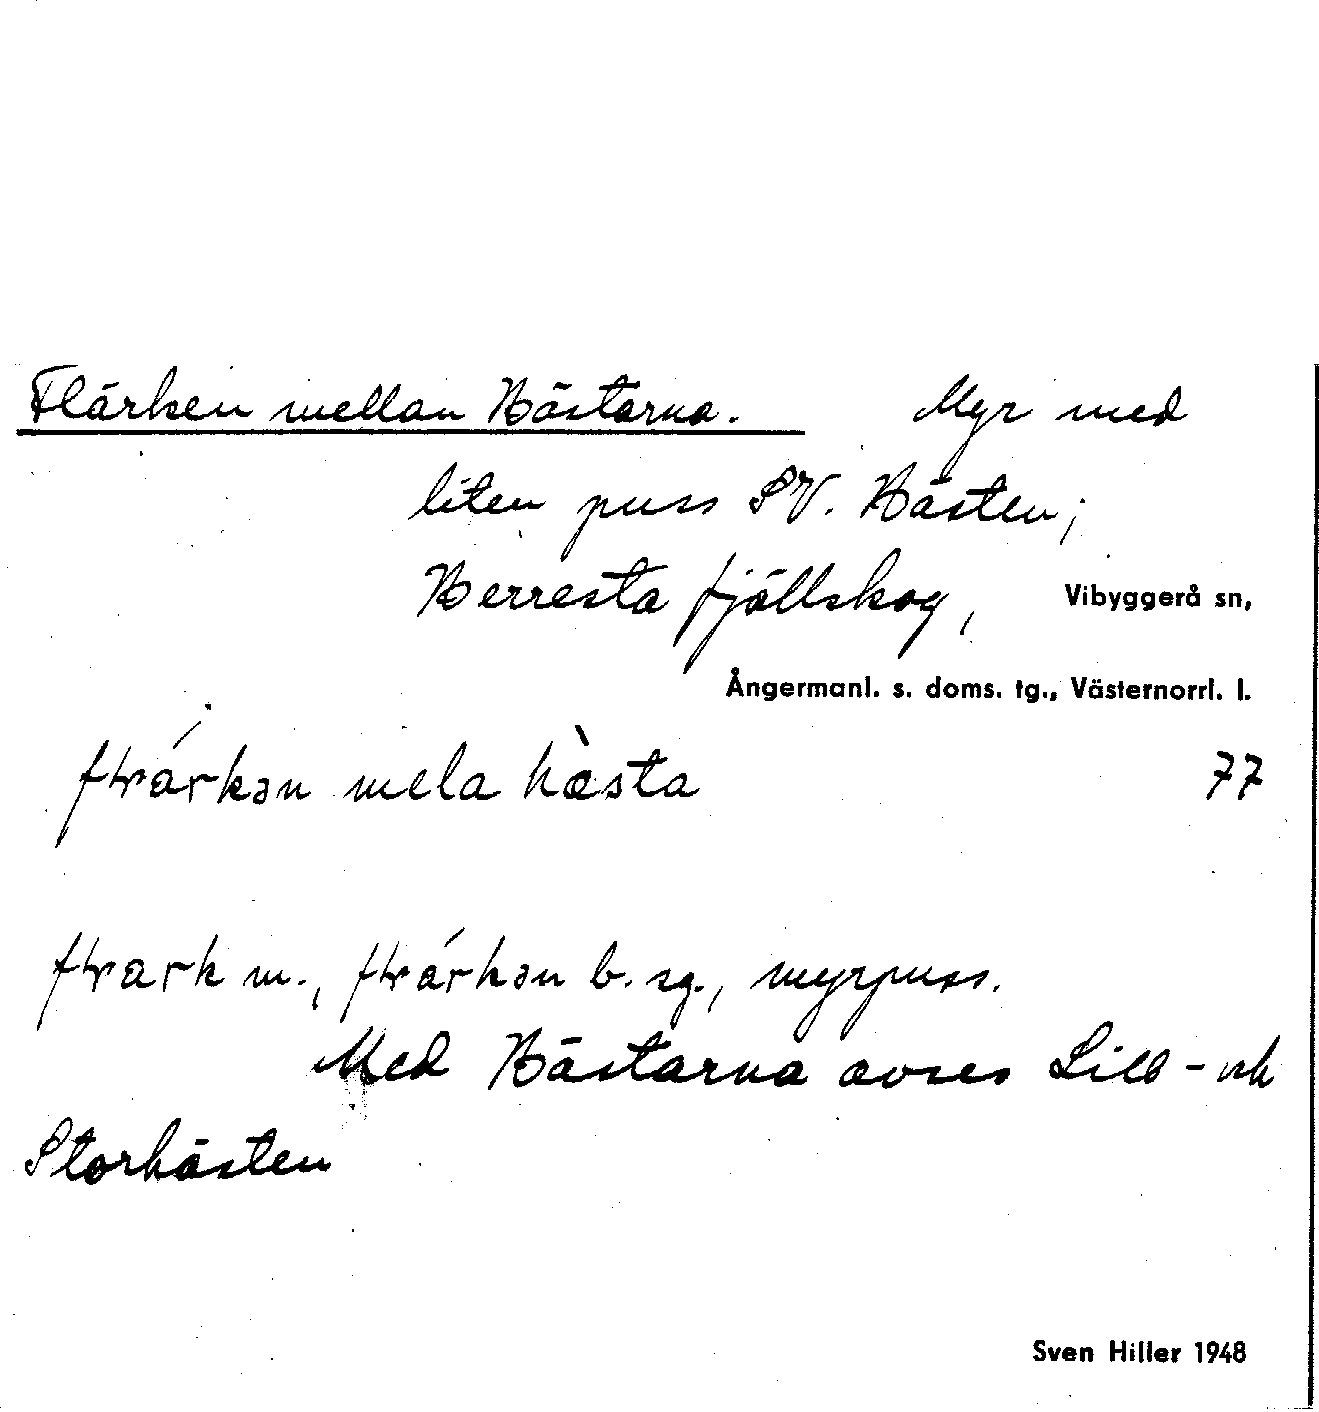 Flärken mellan Hästarna. Myr med
liten puss SV. Hästen;
Herresta fjällskog, Vibyggerå sn,
Ångermanl. s. doms. tg., Västernorrl. l.
mela hæ̀sta 77
m., b. sg., myrpuss.
Med Hästarna avses Lill- och
Storhästen
Sven Hiller 1948